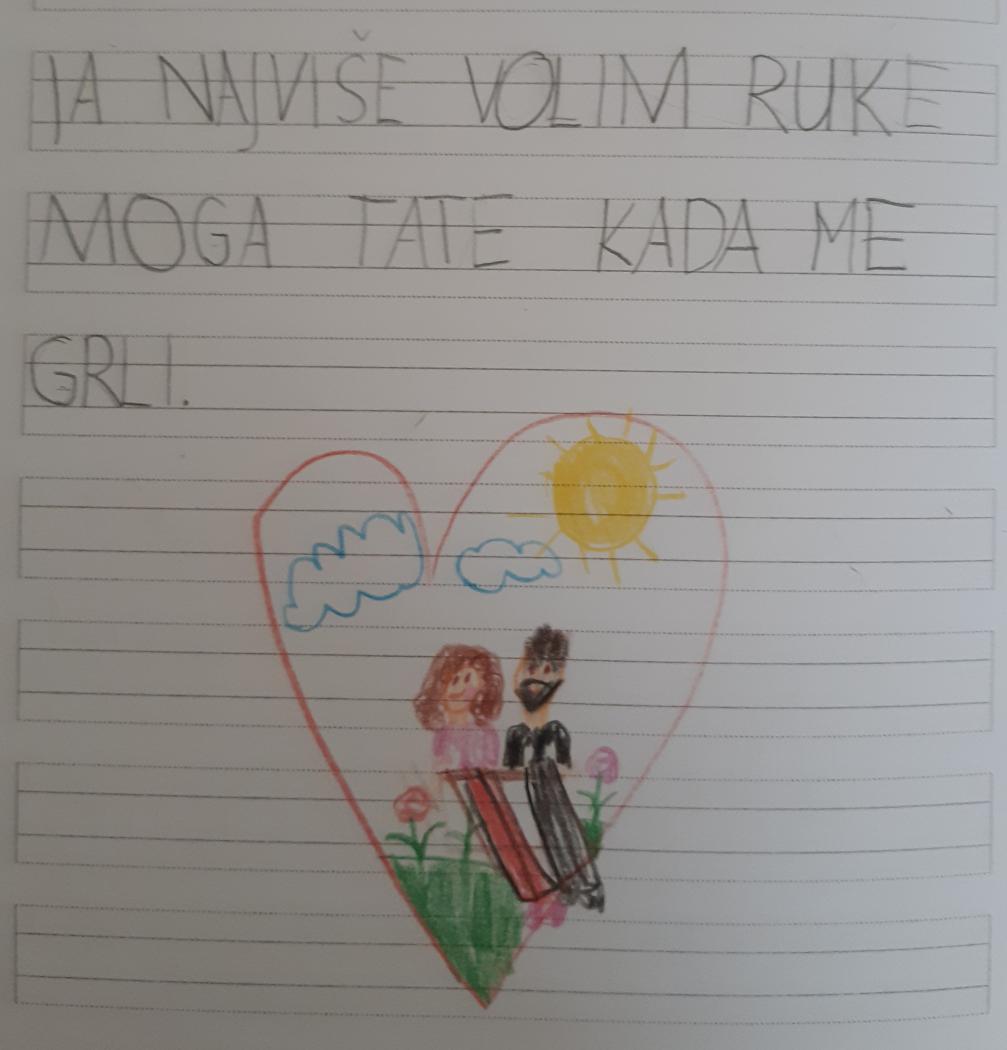 JA NAJVIŠE VOLIM RUKE
MOGA TATE KADA ME
GRLI.